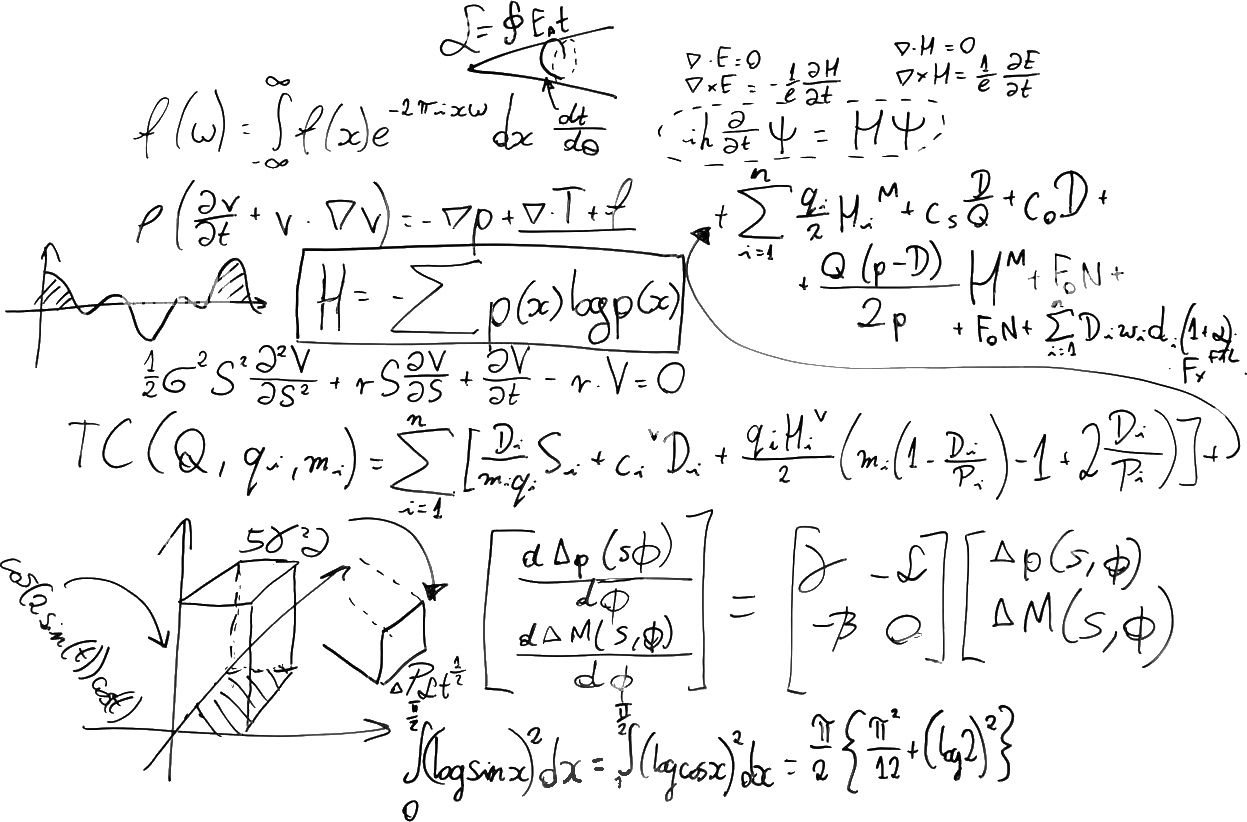 ℒ = ∮ E₀t
∇·E = 0
∇×E = -1/e ∂H/∂t
∇·H = 0
∇×H = 1/e ∂E/∂t
f(ω) = ∫_{-∞}^{∞} f(x)e^{-2πixω} dx dt/dθ
iħ ∂/∂t Ψ = HΨ
ρ(∂v/∂t + v·∇v) = -∇p + ∇·T + f
+ Σ_{i=1}^{n} q_i/2 H_i^M + c_s D/Q + c_0 D +
H = -Σ p(x) log p(x)
+ Q(p-D)/2p H^M + F_0 N +
+ F_0 N + Σ_{i=1}^{n} D_i w_i d_i (1+α)
F_x
1/2 σ² S² ∂²V/∂S² + rS ∂V/∂S + ∂V/∂t - r·V = 0
TC(Q, q_i, m_i) = Σ_{i=1}^{n} [D_i/(m_i q_i) S_i + c_i^v D_i + q_i H_i^v/2 (m_i(1 - D_i/P_i) - 1 + 2 D_i/P_i)] +
5γ²∂
cos(2sin(t))cos(t)
ΔPℒt^{1/2}
[dΔp(sϕ)/dϕ
dΔM(s,ϕ)/dϕ] = [γ -ℒ
-β 0] [Δp(s,ϕ)
ΔM(s,ϕ)]
∫_0^{π/2} (log sin x)² dx = ∫^{π/2} (log cos x)² dx = π/2 {π²/12 + (log 2)²}